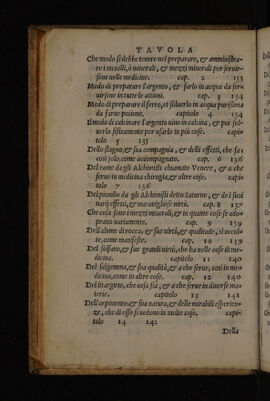 TAVOLA
Che modo si debbe tenere nel preparare, & amministra-
re i metalli, ò minerali, & mezzi minerali per servir-
sene nelle medicine. cap. 2 133
Modo di preparare l'argento, & farlo in acqua da ser-
uirsene in tutte le attioni. cap. 3 134
Modo di preparare il ferro, et soluerlo in acqua purissima
da farne potione. capitolo 4 134
Il modo di calcinare l'argento uiuo in calcina, & poi sol-
uerlo fisicamente per usarlo in più cose. capi-
tolo 5 135
Dello stagno, & sua compagnia, & delli effetti, che fa
così solo, come accompagnato. cap. 6 136
Del rame da gli Alchimisti chiamato Venere, & a che
serue in medicina chirugia, & altre cose. capi-
tolo 7 136
Del piombo da gli Alchimisti detto Saturno, & de i suoi
varij effetti, & marauigliose virtù. cap. 8 137
Che cosa sono i mezzi minerali, & in quante cose se ado-
prano uariamente. cap. 9 139
Dell'alume di rocca, & sue virtù, & qualitade, si occul-
te, come manifeste. cap. 10 139
Del solfaro, & sue grandi virtù, che ha nelle cose di me-
dicina. capitolo 11 140
Del salgemma, & sua qualità, & a che serue, così in me-
dicina, come in altre cose. cap. 12 140
Del litargirio, che cosa sia, & a che serue in diuerse ma-
terie. capitolo 13 141
Dell'orpimento, & sua natura, & delle mirabili esperien-
ze, che di esso si uedono in molte cose. capi-
tolo 14 142
Della